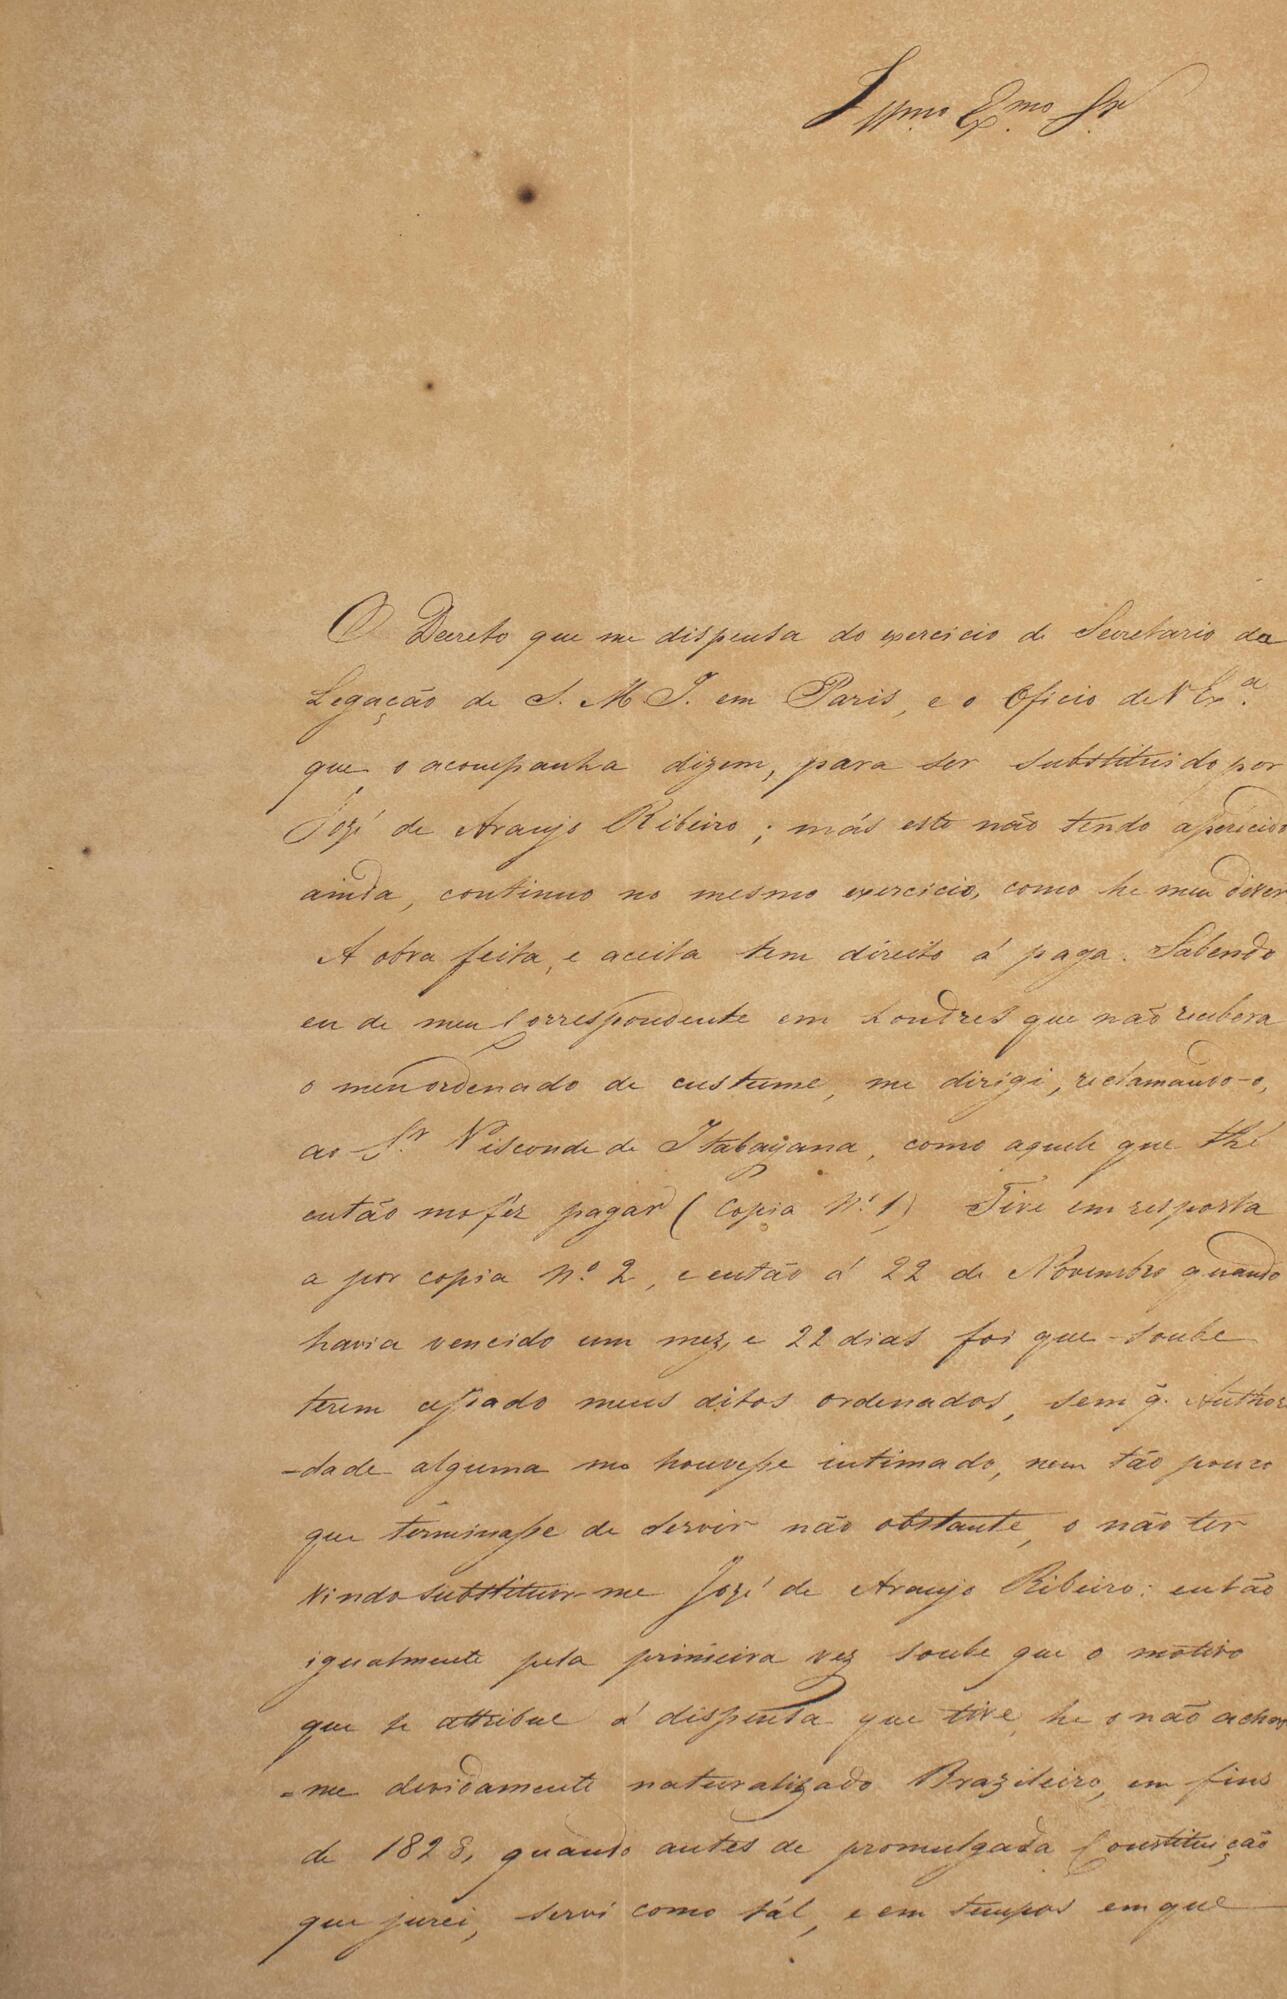 Illmo. Exmo. Sr.
O Decreto que me dispensa do exercicio de Secretario da
Legação de S. M. I. em Paris, e o Oficio de V Exa.
que o acompanha dizem, para ser substituido por
Jozé de Araujo Ribeiro; más este não tendo aparecido
ainda, continuo no mesmo exercicio, como he meu dever
A obra feita, e aceita tem direito á paga. Sabendo
eu de meu Correspondente em Londres que não recebera
o meu ordenado de custume, me dirigi, reclamando-o,
ao Sr. Visconde de Itabayana, como aquele que thé
então mo fez pagar (Copia Nº 1) Tive em resposta
a por copia Nº 2, e então á 22 de Novembro quando
havia vencido um mez, e 22 dias foi que soube
terem cessado meus ditos ordenados, sem q. Authori
-dade alguma mo houvesse intimado, nem tão pouco
que terminasse de servir não obstante, o não ter
vindo substituir-me Jozé de Araujo Ribeiro: então
igualmente pela primeira vez soube que o motivo
que se attribue á dispensa que tive, he o não achar
-me devidamente naturalizado Brazileiro, em fins
de 1828, quando antes de promulgada Constituição
que jurei, servi como tál, e em tempos em que